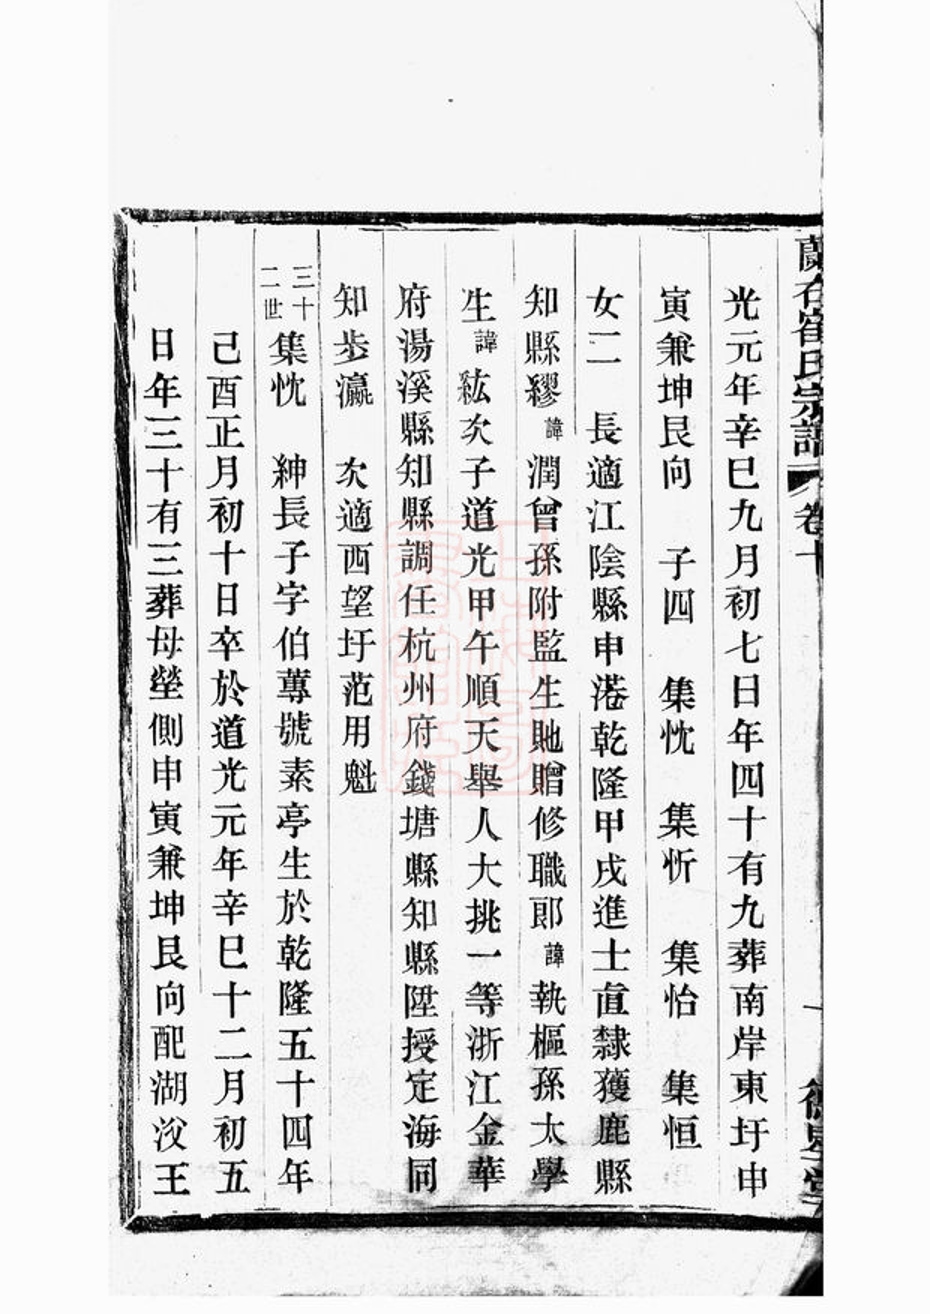 光元年辛巳九月初七日年四十有九葬南岸東圩申
寅兼坤艮向　子四　集忱　集忻　集怡　集恒
女二　長適江陰縣申港乾隆甲戌進士直隸獲鹿縣
知縣繆諱潤曾孫附監生貤贈修職郎諱執樞孫太學
生諱紘次子道光甲午順天舉人大挑一等浙江金華
府湯溪縣知縣調任杭州府錢塘縣知縣陞授定海同
知步瀛　次適西望圩范用魁
三十二世集忱　紳長子字伯蓴號素亭生於乾隆五十四年
己酉正月初十日卒於道光元年辛巳十二月初五
日年三十有三葬母塋側申寅兼坤艮向配湖汊王
崔氏宗譜　卷十